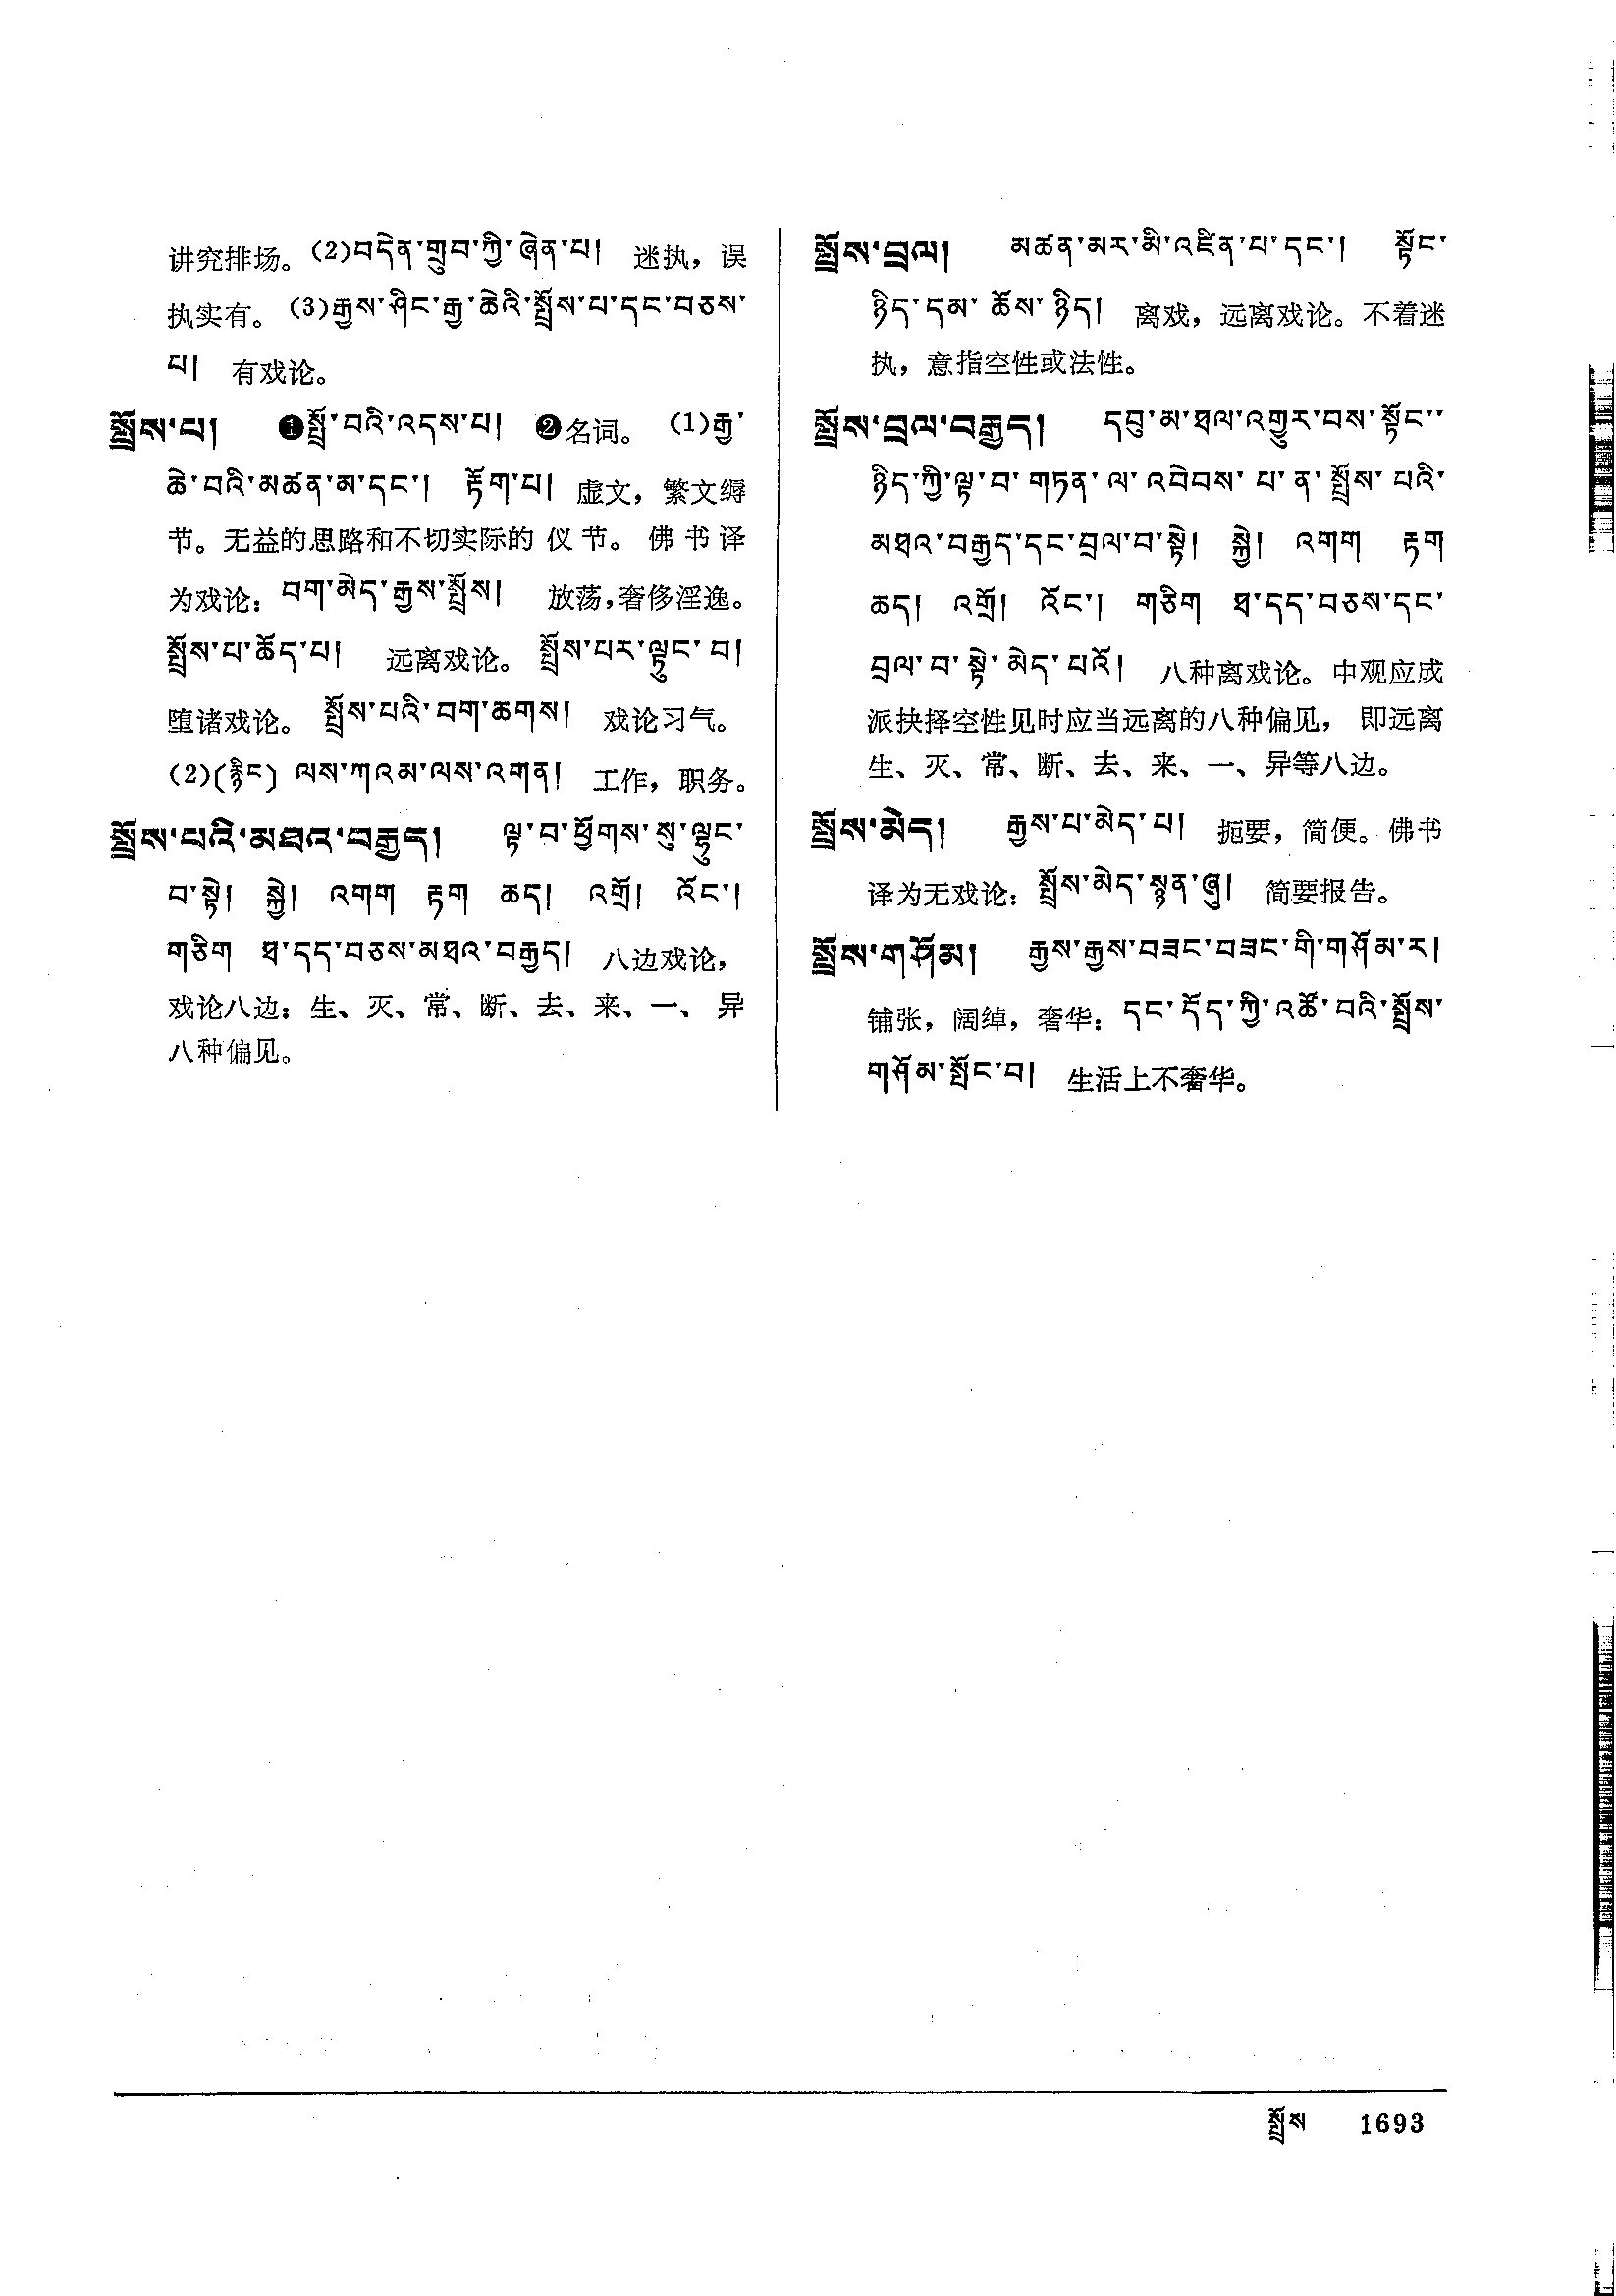 讲究排场。(2)བདེན་གྲུབ་ཀྱི་ཞེན་པ། 迷执，误
执实有。(3)རྒྱས་ཤིང་རྒྱ་ཆེའི་སྤྲོས་པ་དང་བཅས་
པ། 有戏论。
སྤྲོས་པ། ❶སྤྲོ་བའི་འདས་པ། ❷名词。 (1)རྒྱ་
ཆེ་བའི་མཚན་མ་དང་། རྟོག་པ། 虚文，繁文缛
节。无益的思路和不切实际的仪节。佛书译
为戏论：བག་མེད་རྒྱས་སྤྲོས། 放荡，奢侈淫逸。
སྤྲོས་པ་ཆོད་པ། 远离戏论。 སྤྲོས་པར་ལྟུང་བ།
堕诸戏论。 སྤྲོས་པའི་བག་ཆགས། 戏论习气。
(2)(རྙིང) ལས་ཀའམ་ལས་འགན། 工作，职务。
སྤྲོས་པའི་མཐའ་བརྒྱད། ལྟ་བ་ཕྱོགས་སུ་ལྷུང་
བ་སྟེ། སྐྱེ། འགག རྟག ཆད། འགྲོ། འོང་།
གཅིག ཐ་དད་བཅས་མཐའ་བརྒྱད། 八边戏论，
戏论八边：生、灭、常、断、去、来、一、异
八种偏见。
སྤྲོས་བྲལ། མཚན་མར་མི་འཛིན་པ་དང་། སྟོང་
ཉིད་དམ་ཆོས་ཉིད། 离戏，远离戏论。不着迷
执，意指空性或法性。
སྤྲོས་བྲལ་བརྒྱད། དབུ་མ་ཐལ་འགྱུར་བས་སྟོང་་
ཉིད་ཀྱི་ལྟ་བ་གཏན་ལ་འབེབས་པ་ན་སྤྲོས་པའི་
མཐའ་བརྒྱད་དང་བྲལ་བ་སྟེ། སྐྱེ། འགག རྟག
ཆད། འགྲོ། འོང་། གཅིག ཐ་དད་བཅས་དང་
བྲལ་བ་སྟེ་མེད་པའོ། 八种离戏论。中观应成
派抉择空性见时应当远离的八种偏见，即远离
生、灭、常、断、去、来、一、异等八边。
སྤྲོས་མེད། རྒྱས་པ་མེད་པ། 扼要，简便。佛书
译为无戏论：སྤྲོས་མེད་སྙན་ཞུ། 简要报告。
སྤྲོས་གཤོམ། རྒྱས་རྒྱས་བཟང་བཟང་གི་གཤོམ་ར།
铺张，阔绰，奢华：དང་དོད་ཀྱི་འཚོ་བའི་སྤྲོས་
གཤོམ་སྤོང་བ། 生活上不奢华。
སྤྲོས 1693